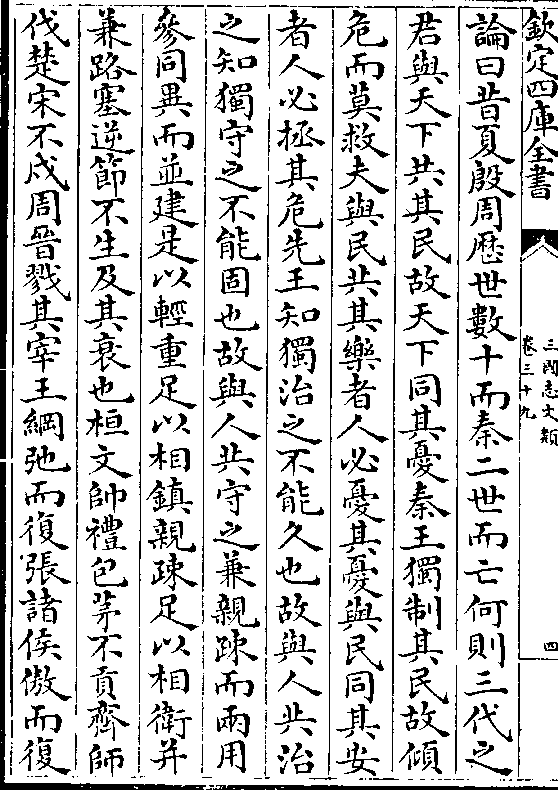 欽定四庫全書
三國志文類
卷三十九
四
論曰昔夏殷周歷世數十而秦二世而亡何則三代之
君與天下共其民故天下同其憂秦王獨制其民故傾
危而莫救夫與民共其樂者人必憂其憂與民同其安
者人必拯其危先王知獨治之不能久也故與人共治
之知獨守之不能固也故與人共守之兼親踈而兩用
參同異而並建是以輕重足以相鎮親踈足以相衛并
兼路塞逆節不生及其衰也桓文帥禮包茅不貢齊師
伐楚宋不戍周晉戮其宰王綱弛而復張諸侯傲而復